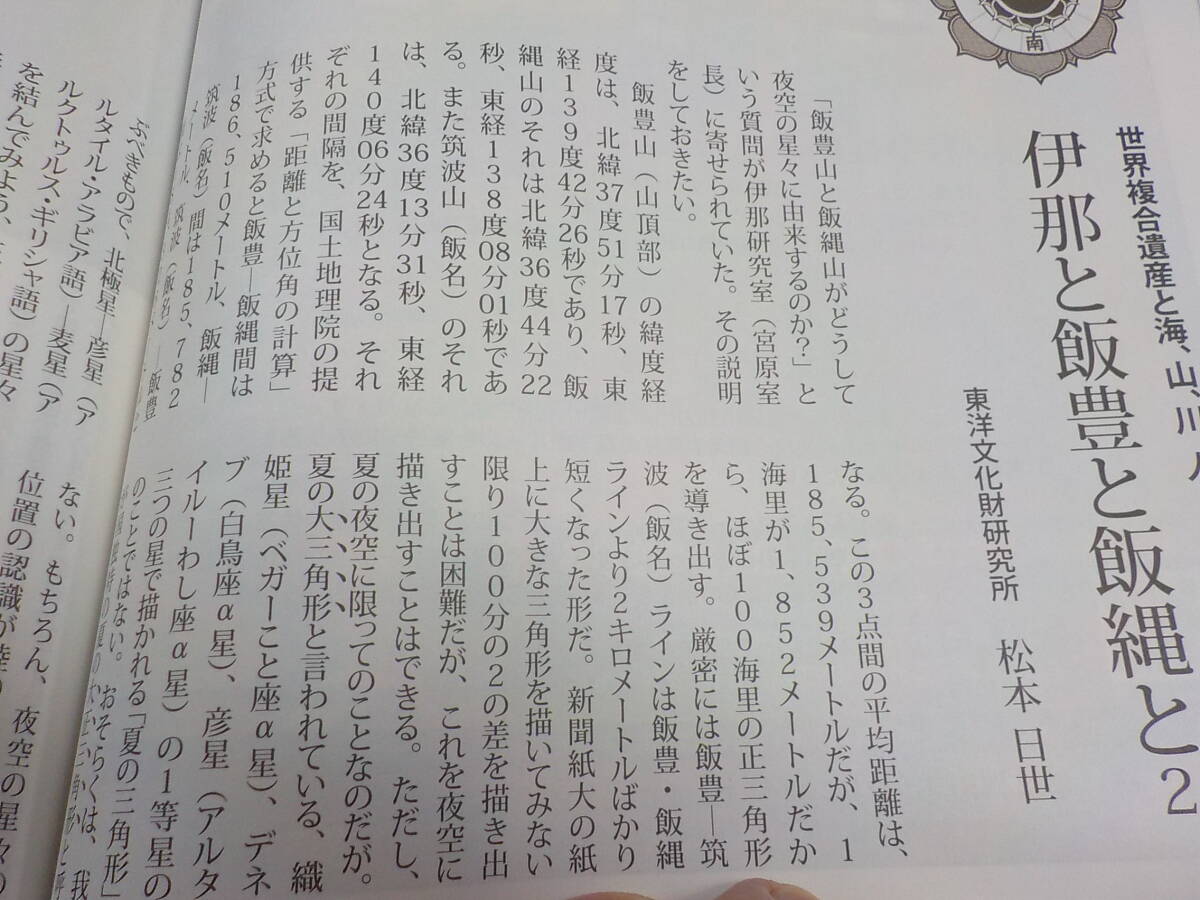 南
世界複合遺産と海、山、川、人
伊那と飯豊と飯縄と2
東洋文化財研究所　松本 日世
「飯豊山と飯縄山がどうして
夜空の星々に由来するのか？」と
いう質問が伊那研究室（宮原室
長）に寄せられていた。その説明
をしておきたい。
飯豊山（山頂部）の緯度経
度は、北緯37度51分17秒、東
経139度42分26秒であり、飯
縄山のそれは北緯36度44分22
秒、東経138度08分01秒であ
る。また筑波山（飯名）のそれ
は、北緯36度13分31秒、東経
140度06分24秒となる。それ
ぞれの間隔を、国土地理院の提
供する「距離と方位角の計算」
方式で求めると飯豊―飯縄間は
186、510メートル、飯縄―
筑波（飯名）間は185、782
メートル、筑波（飯名）―飯豊
なる。この3点間の平均距離は、
185、539メートルだが、1
海里が1、852メートルだか
ら、ほぼ100海里の正三角形
を導き出す。厳密には飯豊―筑
波（飯名）ラインは飯豊・飯縄
ラインより2キロメートルばかり
短くなった形だ。新聞紙大の紙
上に大きな三角形を描いてみない
限り100分の2の差を描き出
すことは困難だが、これを夜空に
描き出すことはできる。ただし、
夏の夜空に限ってのことなのだが。
夏の大三角形と言われている、織
姫星（ベガーこと座α星）、デネ
ブ（白鳥座α星）、彦星（アルタ
イルーわし座α星）の1等星の
三つの星で描かれる「夏の三角形」
のことではない。おそらくは、我
ぶべきもので、北極星―彦星（ア
ルタイル・アラビア語）―麦星（ア
ルクトゥルス・ギリシャ語）の星々
を結んでみよう、
ない。もちろん、
位置の認識が
夜空の星々の